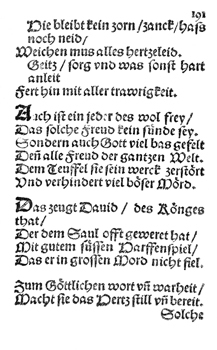 191
Hie bleibt kein zorn / zanck / haſs
noch neid /
Weichen mus alles hertzeleid.
Geitz / ſorg vnd was ſonſt hart
anleit
Fert hin mit aller trawrigkeit.
Auch iſt ein jeder des wol frey /
Das ſolche Freud kein ſünde ſey.
Sondern auch Gott viel bas gefelt
Deñ alle Freud der gantzen Welt.
Dem Teuffel ſie ſein werck zerſtört
Vnd verhindert viel böſer Mörd.
Das zeugt Dauid / des Könges
that /
Der dem Saul offt geweret hat /
Mit gutem ſüſſen Harffenſpiel /
Das er in groſſen Mord nicht fiel.
Zum Göttlichen wort vñ warheit /
Macht ſie das Hertz ſtill vñ bereit.
Solche